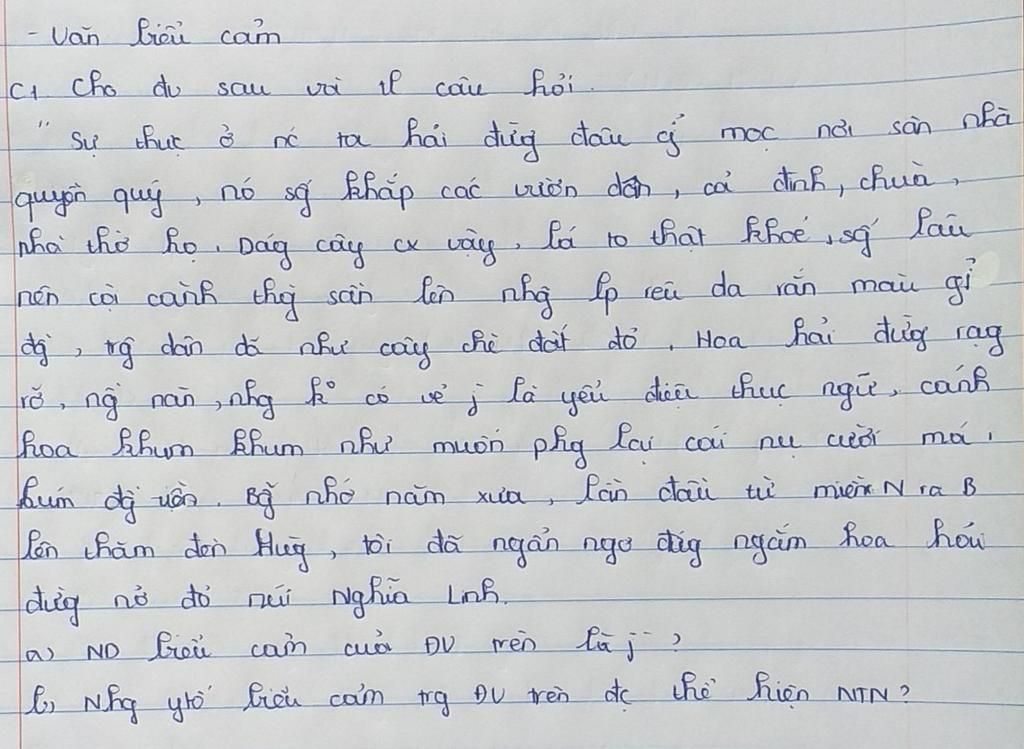 - Văn biểu cảm
C1 Cho đv sau và tl câu hỏi.
"Sự thực ở nc ta hải đườg đâu chỉ mọc nơi sân nhà
quyền quý, nó sg khắp các vườn dân, cả đình, chùa,
nhà thờ họ. Dág cây cx vậy, lá to thật khoẻ, sg lâu
nên cội cành thg sần lên nhg lp rêu da rắn màu gỉ
đg, trg dân dã như cây chè đất đỏ. Hoa hải đườg rạg
rỡ, ng nàn, nhg k° có vẻ j là yểu điệu thục ngữ, cánh
hoa khum khum như muốn phg lại cái nụ cười má
lúm đg tiền. Bg nhớ năm xưa, lần đầu từ miền N ra B
lên thăm đền Hùg, tôi đã ngẩn ngơ đứg ngắm hoa hải
đườg nở đỏ núi Nghĩa Lĩnh.
a) ND biểu cảm của ĐV trên là j" ?
b) Nhg ytố biểu cảm trg ĐV trên đc thể hiện NTN ?